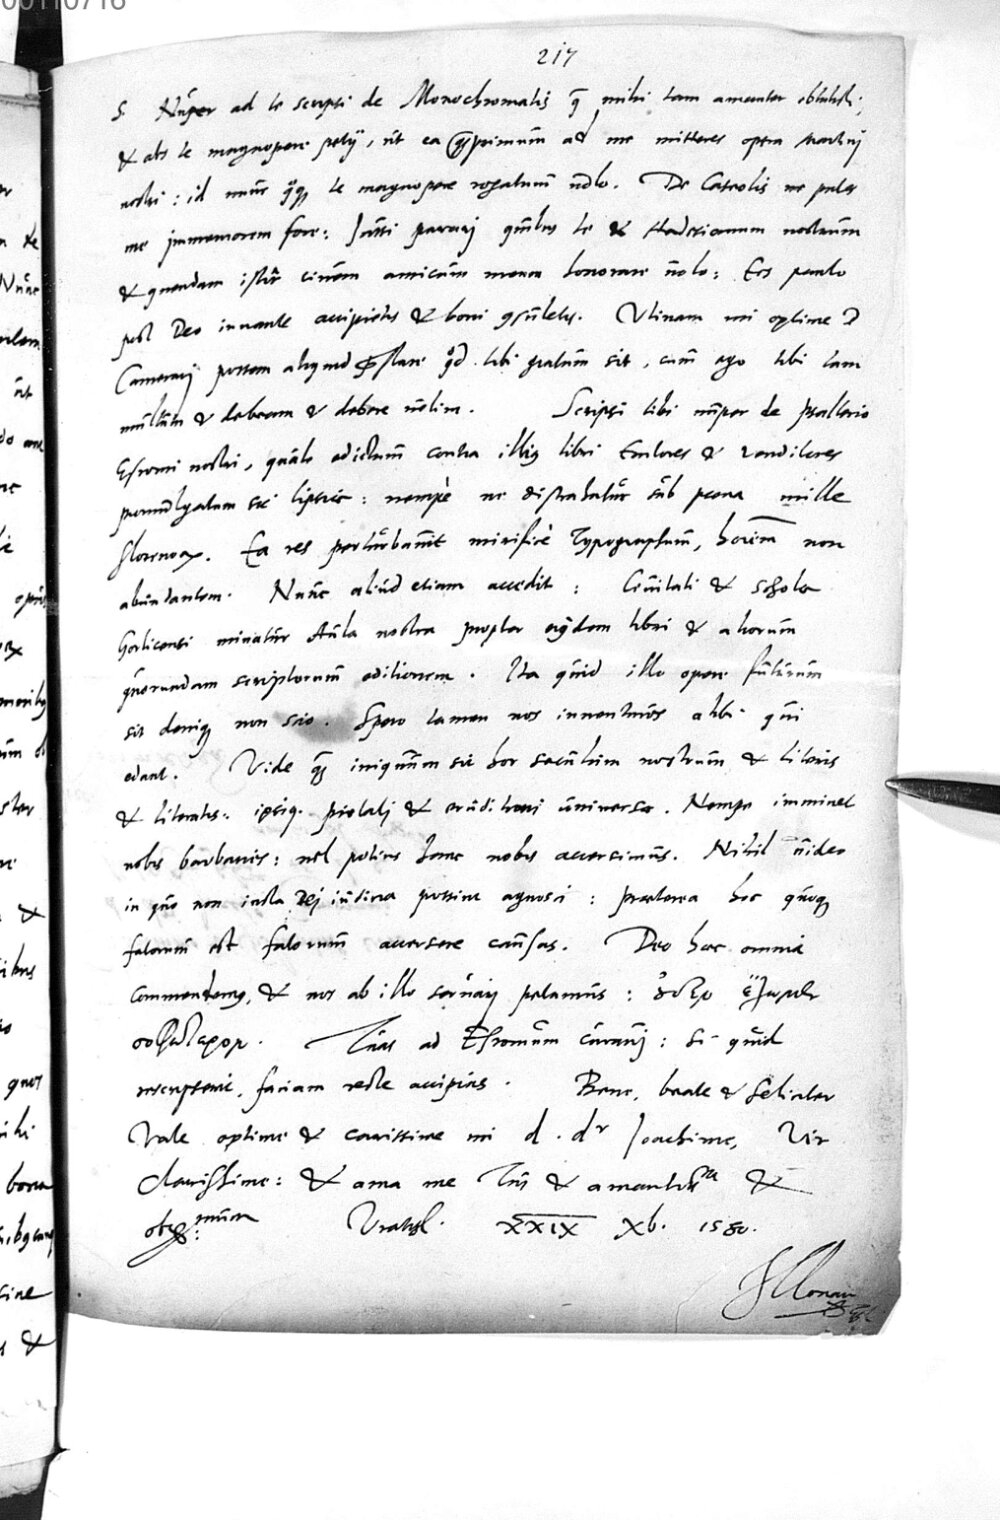 00110716
217
S. Nuper ad te scripsi de Monochromatis q̃ mihi tam amanter obtulisti;
& abs te magnopere petij, ut ea qᷓprimum ad me mitteres opera
nostri: id nunc quoq; te magnopere rogatum volo. De Catholis ne putes
me immemorem fore: Jussi parari quibus te & Hadrianum nostrum
& quendam istic civem amicum meum honorare volo: Eos paulo
post Deo iuvante accipietis & boni consuletis. Utinam mi optime D
Camerari possem aliquid præstare qd tibi gratum sit, cum ego tibi tam
multum & debeam & debere velim. Scripsi tibi nuper de psalterio
Esromi nostri, quale edictum contra illius libri Emtores & venditores
promulgatum sit lipsiæ: nempè ne distrahatur sub poena mille
florenorum. Ea res perturbavit mirificè Typographum, hominem non
abundantem. Nunc aliud etiam accedit: Civitati & scholæ
Gorlicensi minatur Aula nostra propter eiusdem libri & aliorum
quorundam scriptorum editionem. Ita quid illo opere futurum
sit deniq; non scio. Spero tamen nos inventuros alibi qui
edant. Vide qᷓ iniquum sit hoc seculum nostrum & literis
& literatis: ipsiq. pietati & eruditioni universæ. Nempe imminet
nobis barbaries: vel potius hanc nobis accersimus. Nihil video
in quo non iusta Dei iudicia possim agnosci: præterea hoc quoq;
fatorum est fatorum accersere causas. Deo hæc omnia
commendemus, & nos ab illo servari petamus:
Tuas ad Esromum curavi: si quid
rescripserit, faciam recte accipias. Bene, beate & feliciter
Vale optime & carissime mi d. dr Joachime, Vir
clarissime: & ama me Tui & amantissm &
obsermum Vratisl. XXIX Xb. 1580.